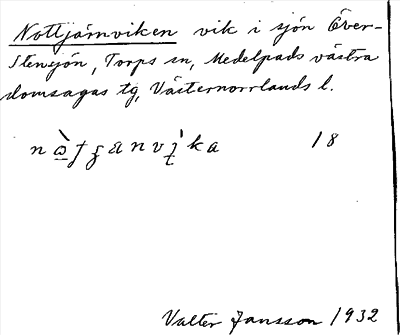 Nottjärnviken vik i sjön Över-
Stensjön, Torps sn, Medelpads västra
domsagas tg, Västernorrlands l.
18
Valter Jansson 1932